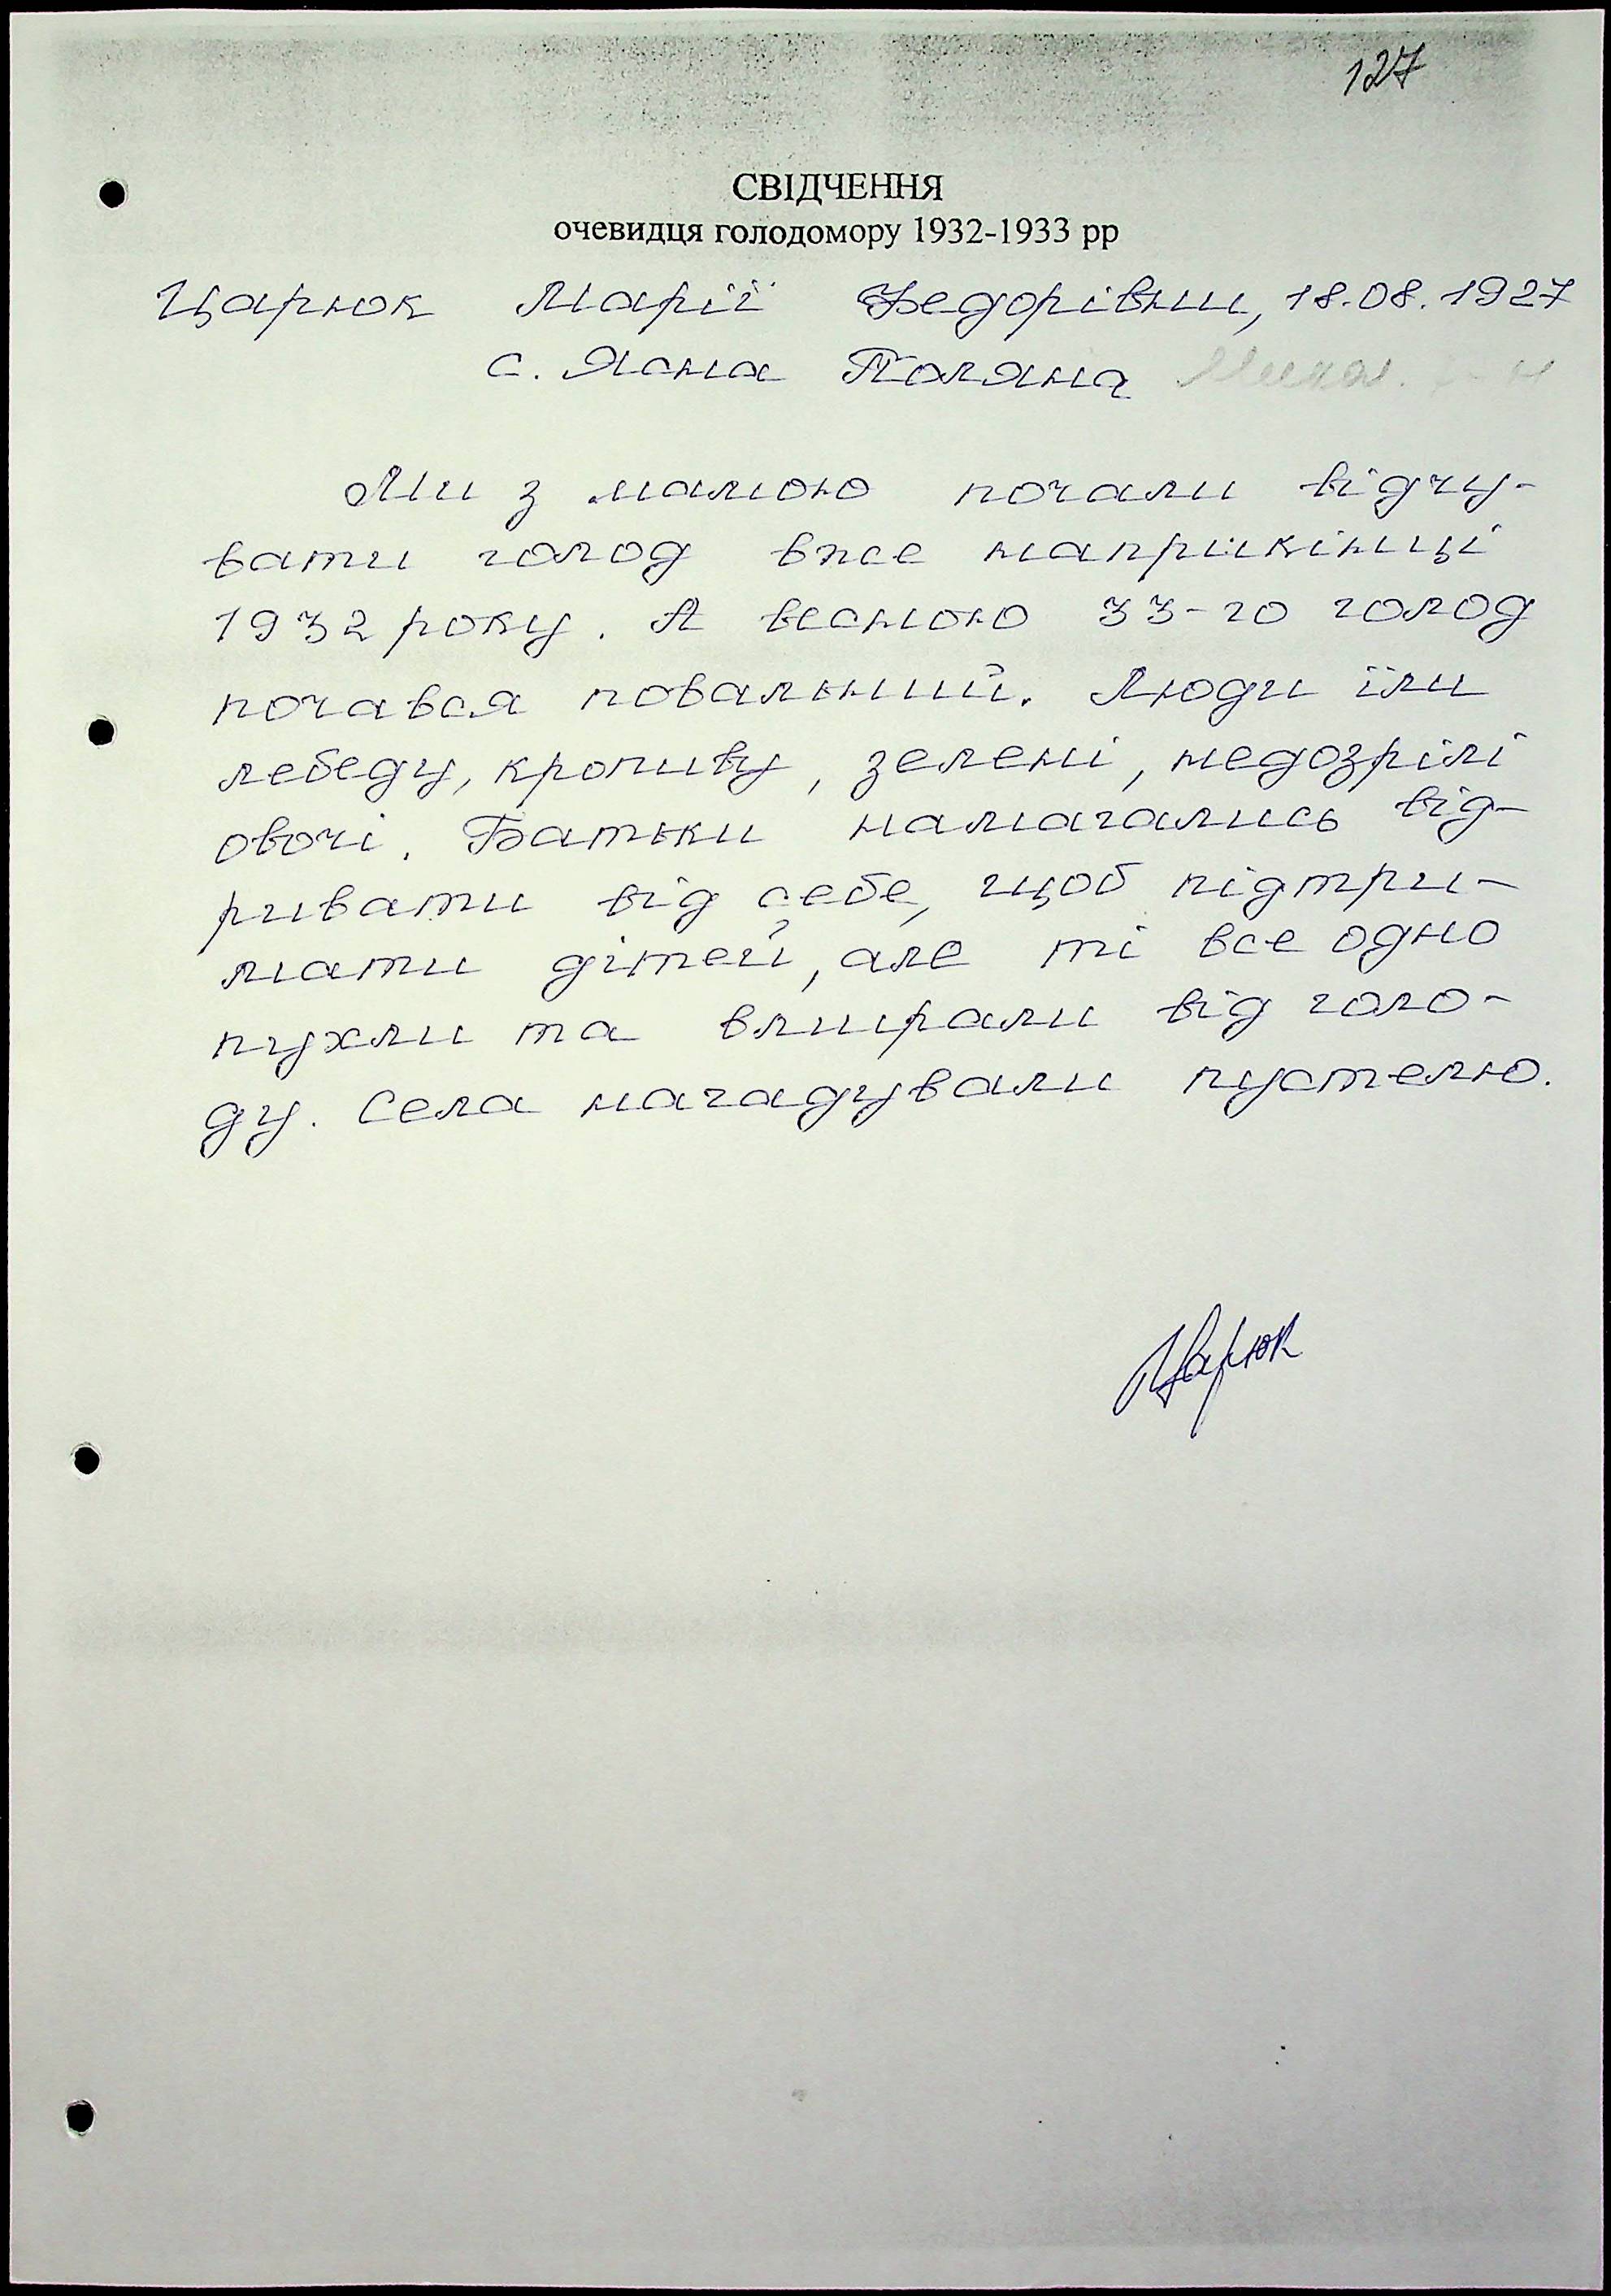 127
СВІДЧЕННЯ
очевидця голодомору 1932-1933 рр
Царюк Марії Федорівни, 18.08.1927
с. Ясна Поляна
Ми з мамою почали відчу-
вати голод вже наприкінці
1932 року. А весною 33-го голод
почався повальний. Люди їли
лебеду, кропиву, зелені, недозрілі
овочі. Батьки намагались від-
ривати від себе, щоб підтри-
мати дітей, але ті все одно
пухли та вмирали від голо-
ду. Села нагадували пустелю.
Царюк